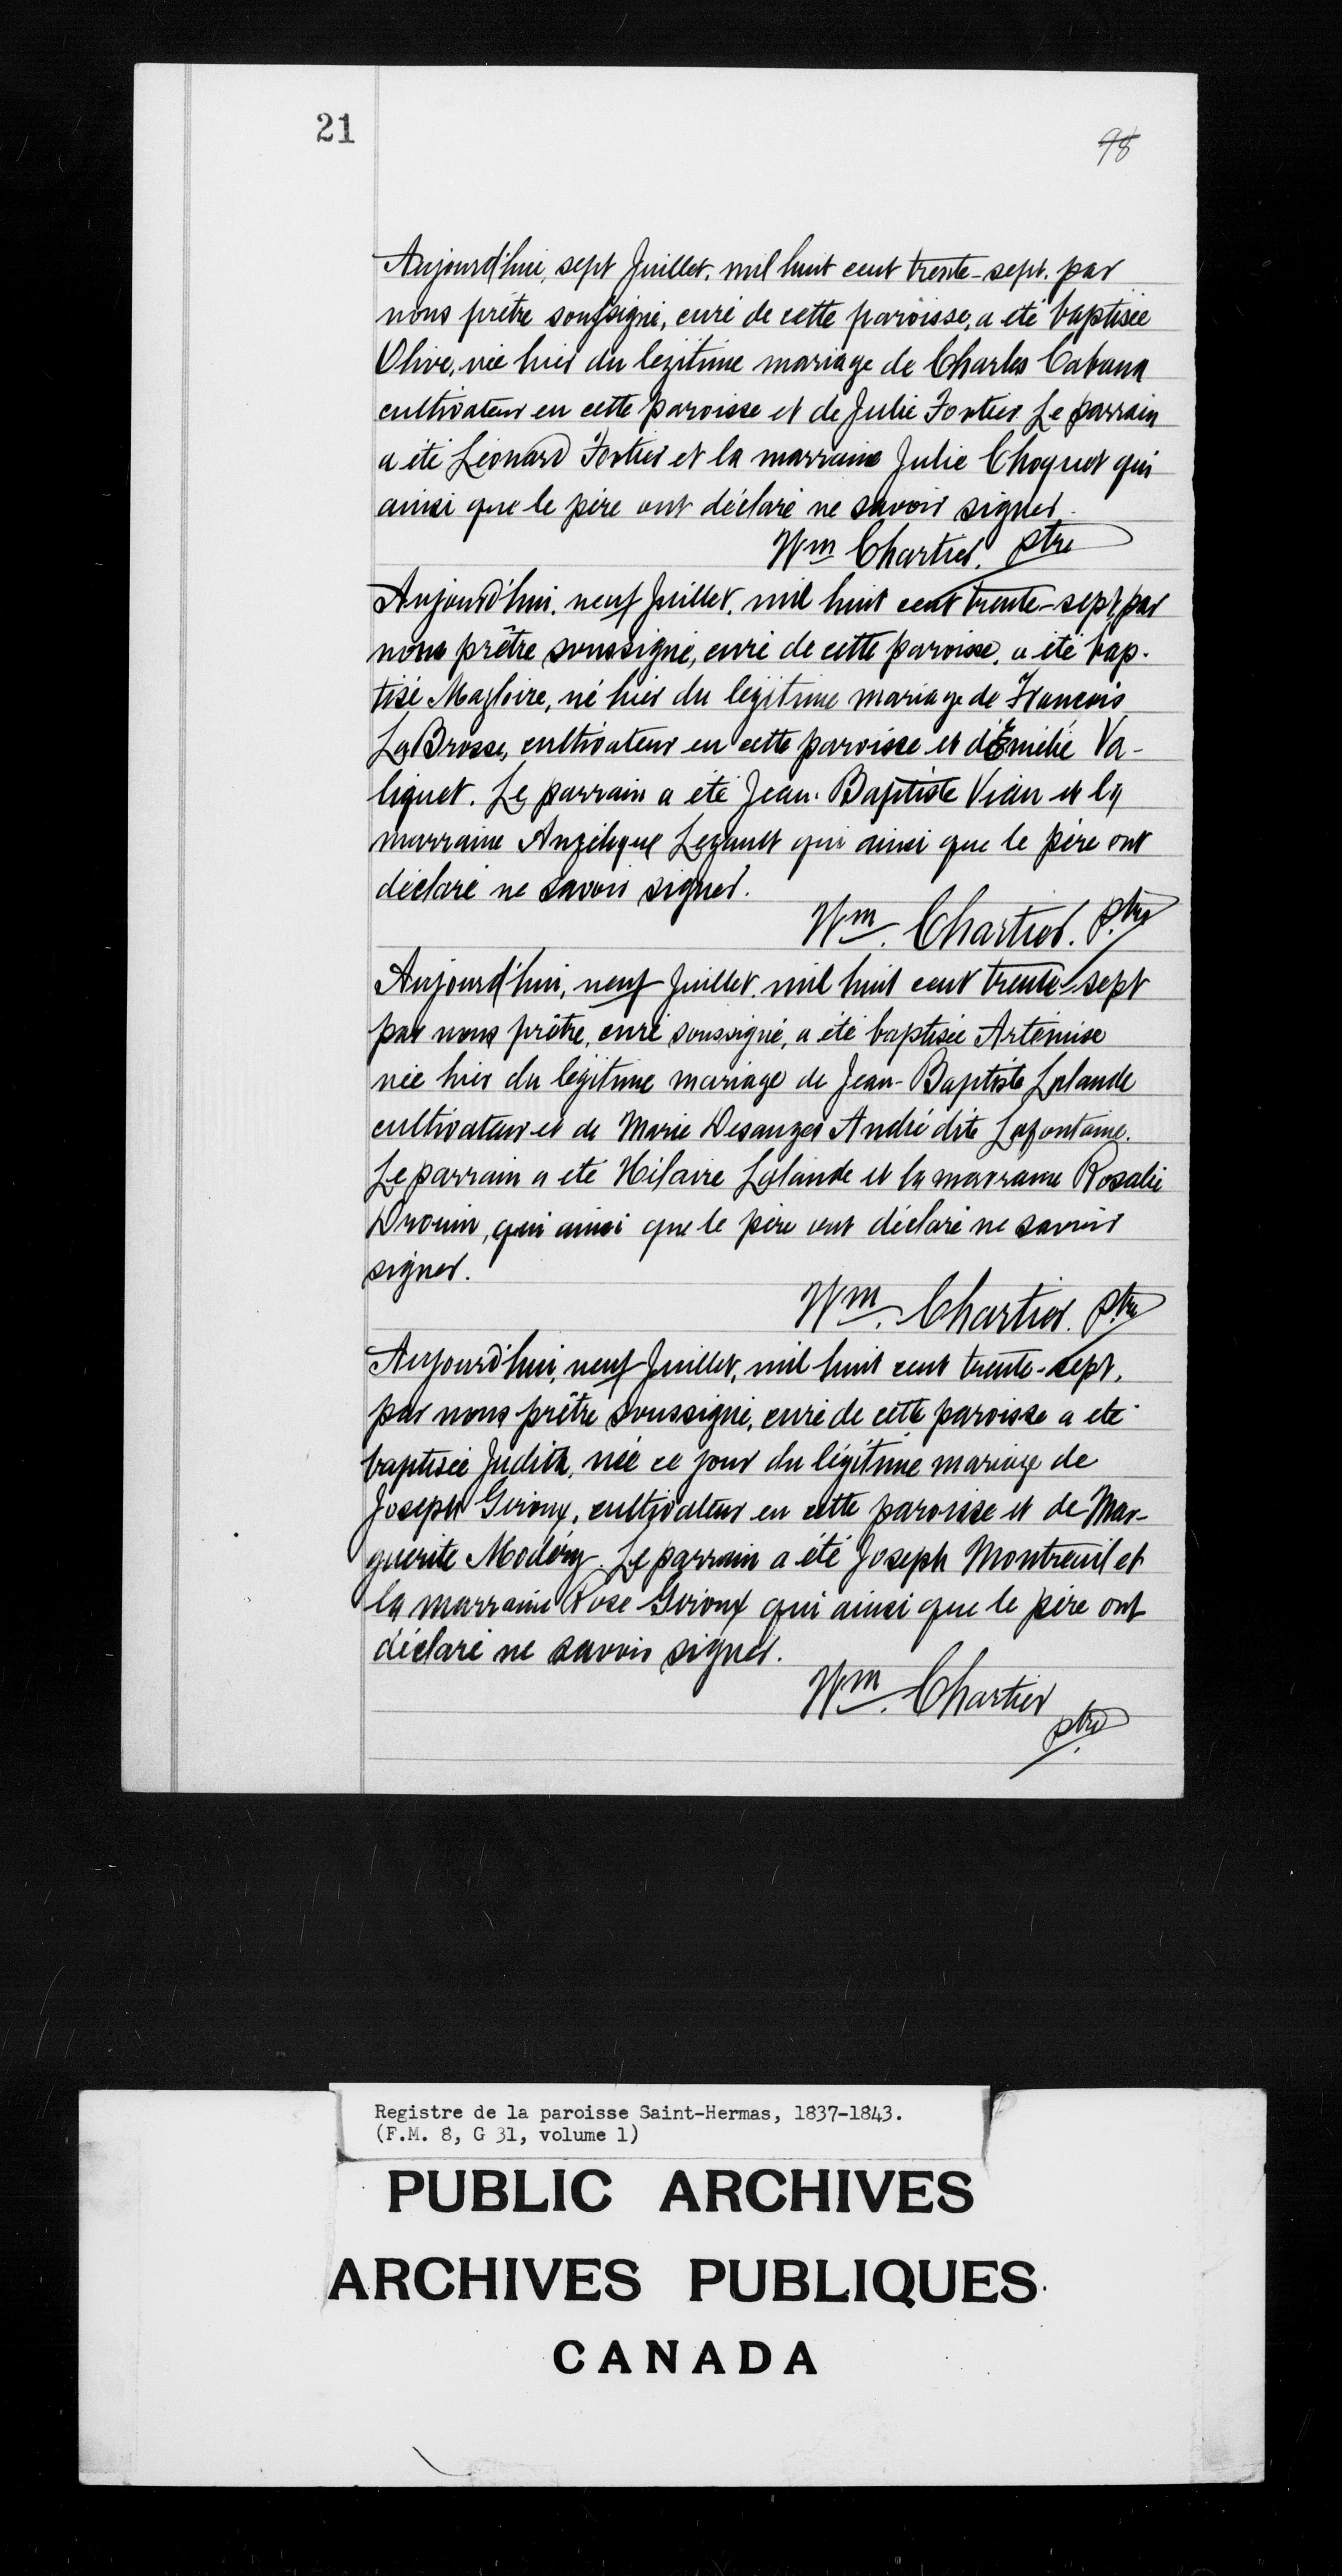 21
98
Aujourd'hui, sept Juillet, mil huit cent trente-sept, par
nous prêtre soussigné, curé de cette paroisse, a été baptisée
Olive, née hier du légitime mariage de Charles Cabana
cultivateur en cette paroisse et de Julie Fortier. Le parrain
a été Léonard Fortier et la marraine Julie Choquet qui
ainsi que le père ont déclaré ne savoir signer.
Wm Chartier. ptre
Aujourd'hui, neuf Juillet, mil huit cent trente-sept, par
nous prêtre soussigné, curé de cette paroisse, a été bap-
tisé Magloire, né hier du légitime mariage de François
LaBrosse, cultivateur en cette paroisse et d'Emélie Va-
liquet. Le parrain a été Jean-Baptiste Vian et la
marraine Angélique Legault qui ainsi que le père ont
déclaré ne savoir signer.
Wm. Chartier. ptre
Aujourd'hui, neuf Juillet, mil huit cent trente-sept
par nous prêtre, curé soussigné, a été baptisée Artémise
née hier du légitime mariage de Jean-Baptiste Lalande
cultivateur et de Marie Desanges André dite Lafontaine.
Le parrain a été Hilaire Lalande et la marraine Rosalie
Drouin, qui ainsi que le père ont déclaré ne savoir
signer.
Wm. Chartier. ptre
Aujourd'hui, neuf Juillet, mil huit cent trente-sept,
par nous prêtre soussigné, curé de cette paroisse a été
baptisée Judith, née ce jour du légitime mariage de
Joseph Giroux, cultivateur en cette paroisse et de Mar-
guerite Modéry. Le parrain a été Joseph Montreuil et
la marraine Rose Giroux qui ainsi que le père ont
déclaré ne savoir signer.
Wm. Chartier
ptre
Registre de la paroisse Saint-Hermas, 1837-1843.
(F.M. 8, G 31, volume 1)
PUBLIC ARCHIVES
ARCHIVES PUBLIQUES
CANADA